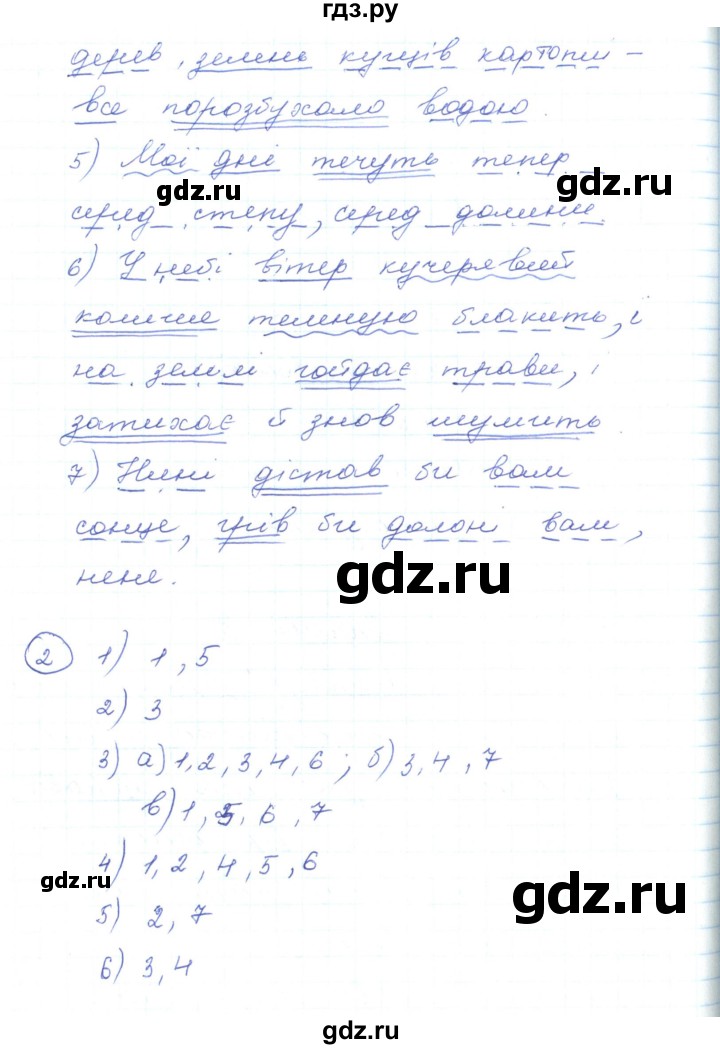 гдз.ру
дерев, зелень кущів картоплі –
все порозбухало водою.
5) Мої дні течуть тепер
gdz.ru
gdz.ru
серед степу, серед долини.
6) У небі вітер кучерявий
колише теменую блакить, і
на землі гойдає трави, і
затихає й знов шумить.
7) Нині дістав би вам
сонце, грів би долоні вам,
нене.
gdz.ru
2 1) 1, 5
2) 3
3) а) 1, 2, 3, 4, 6; б) 3, 4, 7
в) 1, 5, 6, 7
4) 1, 2, 4, 5, 6
gdz.ru
gdz.ru
5) 2, 7
6) 3, 4
gdz.ru